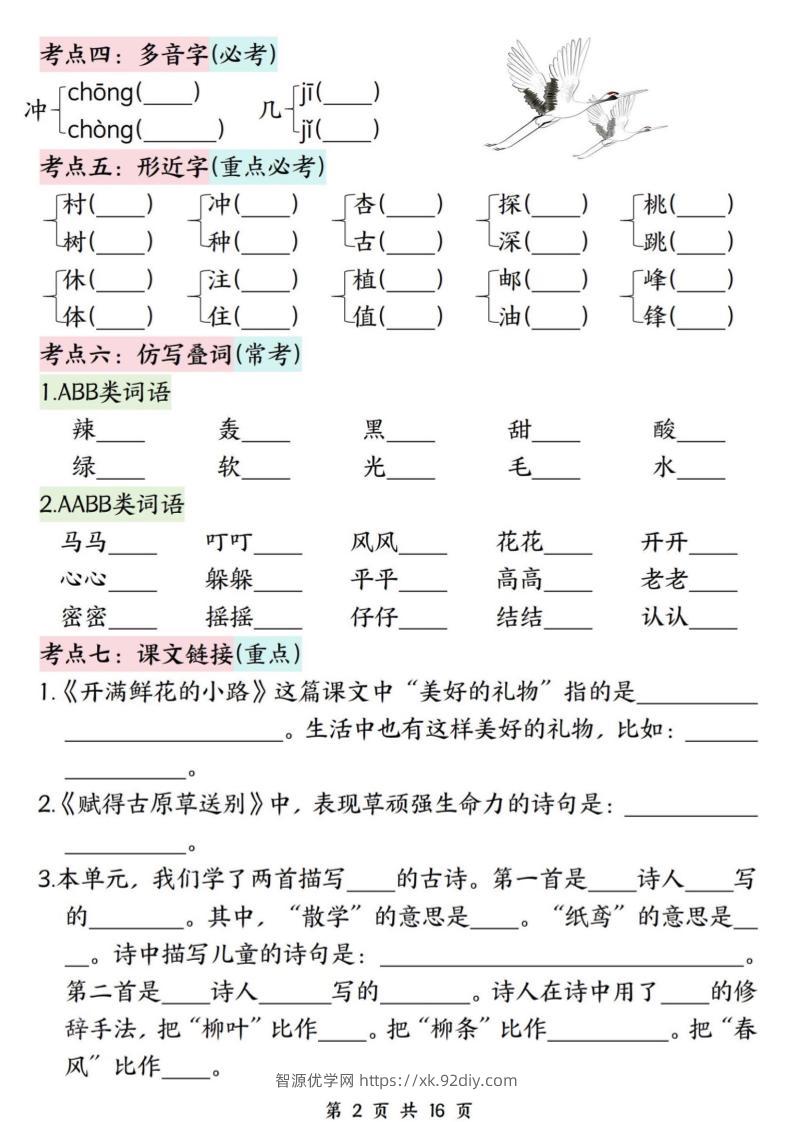 考点四：多音字(必考)
冲 chōng(____) chòng(______) 几 jī(____) jǐ(____)
考点五：形近字(重点必考)
村(____) 冲(____) 杏(____) 探(____) 桃(____)
树(____) 种(____) 古(____) 深(____) 跳(____)
休(____) 注(____) 植(____) 邮(____) 峰(____)
体(____) 住(____) 值(____) 油(____) 锋(____)
考点六：仿写叠词(常考)
1.ABB类词语
辣____ 轰____ 黑____ 甜____ 酸____
绿____ 软____ 光____ 毛____ 水____
2.AABB类词语
马马____ 叮叮____ 风风____ 花花____ 开开____
心心____ 躲躲____ 平平____ 高高____ 老老____
密密____ 摇摇____ 仔仔____ 结结____ 认认____
考点七：课文链接(重点)
1.《开满鲜花的小路》这篇课文中“美好的礼物”指的是__________
__________________。生活中也有这样美好的礼物，比如：______
__________。
2.《赋得古原草送别》中，表现草顽强生命力的诗句是：___________
__________。
3.本单元，我们学了两首描写____的古诗。第一首是____诗人____写
的________。其中，“散学”的意思是____。“纸鸢”的意思是__
__。诗中描写儿童的诗句是：______________________________。
第二首是____诗人______写的________。诗人在诗中用了____的修
辞手法，把“柳叶”比作____。把“柳条”比作__________。把“春
风”比作____。
智源优学网 https://xk.92diy.com
第 2 页 共 16 页